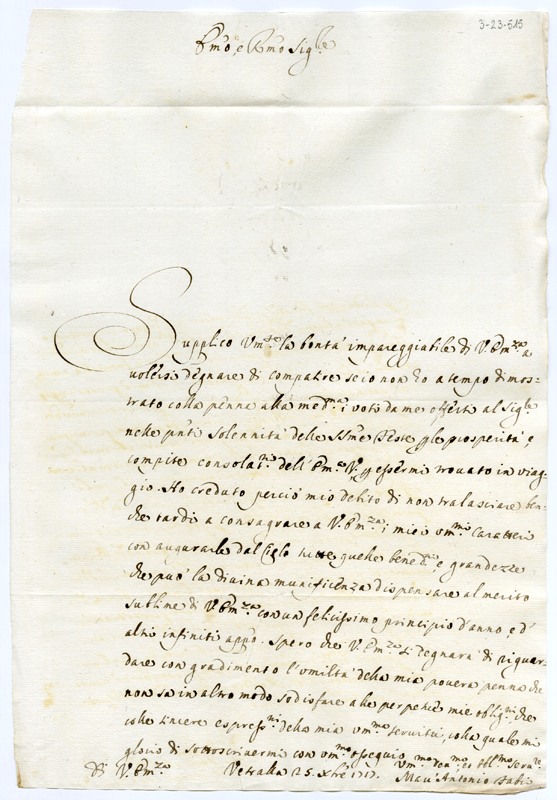 3-23-515
Em.o e R.mo Sig.re
Supplico Um.te la bontà impareggiabile di V. Em.za a
volersi degnare di compatire se io non ho a tempo dimos-
trato colla penna alla med.ma i voti da me offerti al Sig.re
nelle pnti Solennità delle SSme Feste p le prosperità, e
compite consolat.ni dell' Em.za V. p essermi trovato in viag-
gio. Ho creduto perciò mio debito di non tralasciare ben-
che tardi a consagrare a V. Em.za i miei um.mi Caratteri
con augurarle dal Cielo tutte quelle bened.ni, e grandezze
che può la divina munificenza dispensare al merito
sublime di V. Em.za con un felicissimo principio d'anno, e d'
altri infiniti app.o. Spero che V. Em.za si degnarà di riguar-
dare con gradimento l'umiltà della mia povera penna che
non sa in altro modo sodisfare alle perpetue mie oblig.ni che
colle sincere espress.ni della mia um.ma servitù, colla quale mi
glorio di sottoscrivermi con um.mo ossequio
Di V. Em.za Vetralla 25. Xbre 1717. Um.mo Dev.mo et Obl.mo Serv.re
Antonio